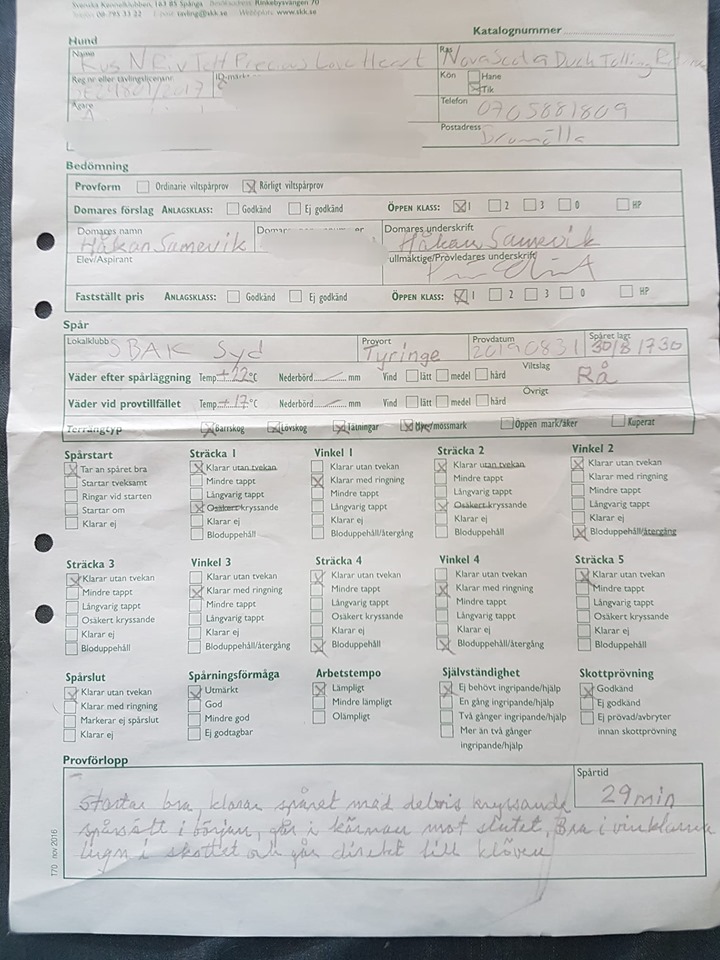 Svenska Kennelklubben, 163 85 Spånga Rinkebysvängen 70
08-795 33 22 tavling@skk.se www.skk.se
Katalognummer
Hund
Namn Ras
Precious Love Heart Nova Scotia Duck Tolling
Reg.nr eller tävlingslicensnr. ID-märkn Kön Hane
SE29801/2017 Tik
Ägare Telefon
0705881809
Postadress
Bromölla
Bedömning
Provform Ordinarie viltspårprov Rörligt viltspårprov
Domares förslag ANLAGSKLASS: Godkänd Ej godkänd ÖPPEN KLASS: 1 2 3 0 HP
Domares namn Domares underskrift
Håkan Samevik Håkan Samevik
Elev/Aspirant Fullmäktige/Provledares underskrift
Fastställt pris ANLAGSKLASS: Godkänd Ej godkänd ÖPPEN KLASS: 1 2 3 0 HP
Spår
Lokalklubb Provort Provdatum Spåret lagt
SBAK Syd Tyringe 20190831 30/8 1730
Väder efter spårläggning Temp +22 °C Nederbörd mm Vind lätt medel hård Viltslag
Rå
Väder vid provtillfället Temp +17 °C Nederbörd mm Vind lätt medel hård Övrigt
Terrängtyp Barrskog Lövskog Tätningar Myr/mossmark Öppen mark/åker Kuperat
Spårstart
Tar an spåret bra
Startar tveksamt
Ringar vid starten
Startar om
Klarar ej
Sträcka 1
Klarar utan tvekan
Mindre tappt
Långvarig tappt
Osäkert kryssande
Klarar ej
Bloduppehåll
Vinkel 1
Klarar utan tvekan
Klarar med ringning
Mindre tappt
Långvarig tappt
Klarar ej
Bloduppehåll/återgång
Sträcka 2
Klarar utan tvekan
Mindre tappt
Långvarig tappt
Osäkert kryssande
Klarar ej
Bloduppehåll
Vinkel 2
Klarar utan tvekan
Klarar med ringning
Mindre tappt
Långvarig tappt
Klarar ej
Bloduppehåll/återgång
Sträcka 3
Klarar utan tvekan
Mindre tappt
Långvarig tappt
Osäkert kryssande
Klarar ej
Bloduppehåll
Vinkel 3
Klarar utan tvekan
Klarar med ringning
Mindre tappt
Långvarig tappt
Klarar ej
Bloduppehåll/återgång
Sträcka 4
Klarar utan tvekan
Mindre tappt
Långvarig tappt
Osäkert kryssande
Klarar ej
Bloduppehåll
Vinkel 4
Klarar utan tvekan
Klarar med ringning
Mindre tappt
Långvarig tappt
Klarar ej
Bloduppehåll/återgång
Sträcka 5
Klarar utan tvekan
Mindre tappt
Långvarig tappt
Osäkert kryssande
Klarar ej
Bloduppehåll
Spårslut
Klarar utan tvekan
Klarar med ringning
Markerar ej spårslut
Klarar ej
Spårningsförmåga
Utmärkt
God
Mindre god
Ej godtagbar
Arbetstempo
Lämpligt
Mindre lämpligt
Olämpligt
Självständighet
Ej behövt ingripande/hjälp
En gång ingripande/hjälp
Två gånger ingripande/hjälp
Mer än två gånger
ingripande/hjälp
Skottprövning
Godkänd
Ej godkänd
Ej prövad/avbryter
innan skottprövning
Provförlopp
Spårtid
29 min
Startar bra, klarar spåret med delvis kryssande
spårsätt i början, går i kärnan mot slutet, Bra i vinklarna
lugn i skottet och går direkt till klöven
T70 nov 2016